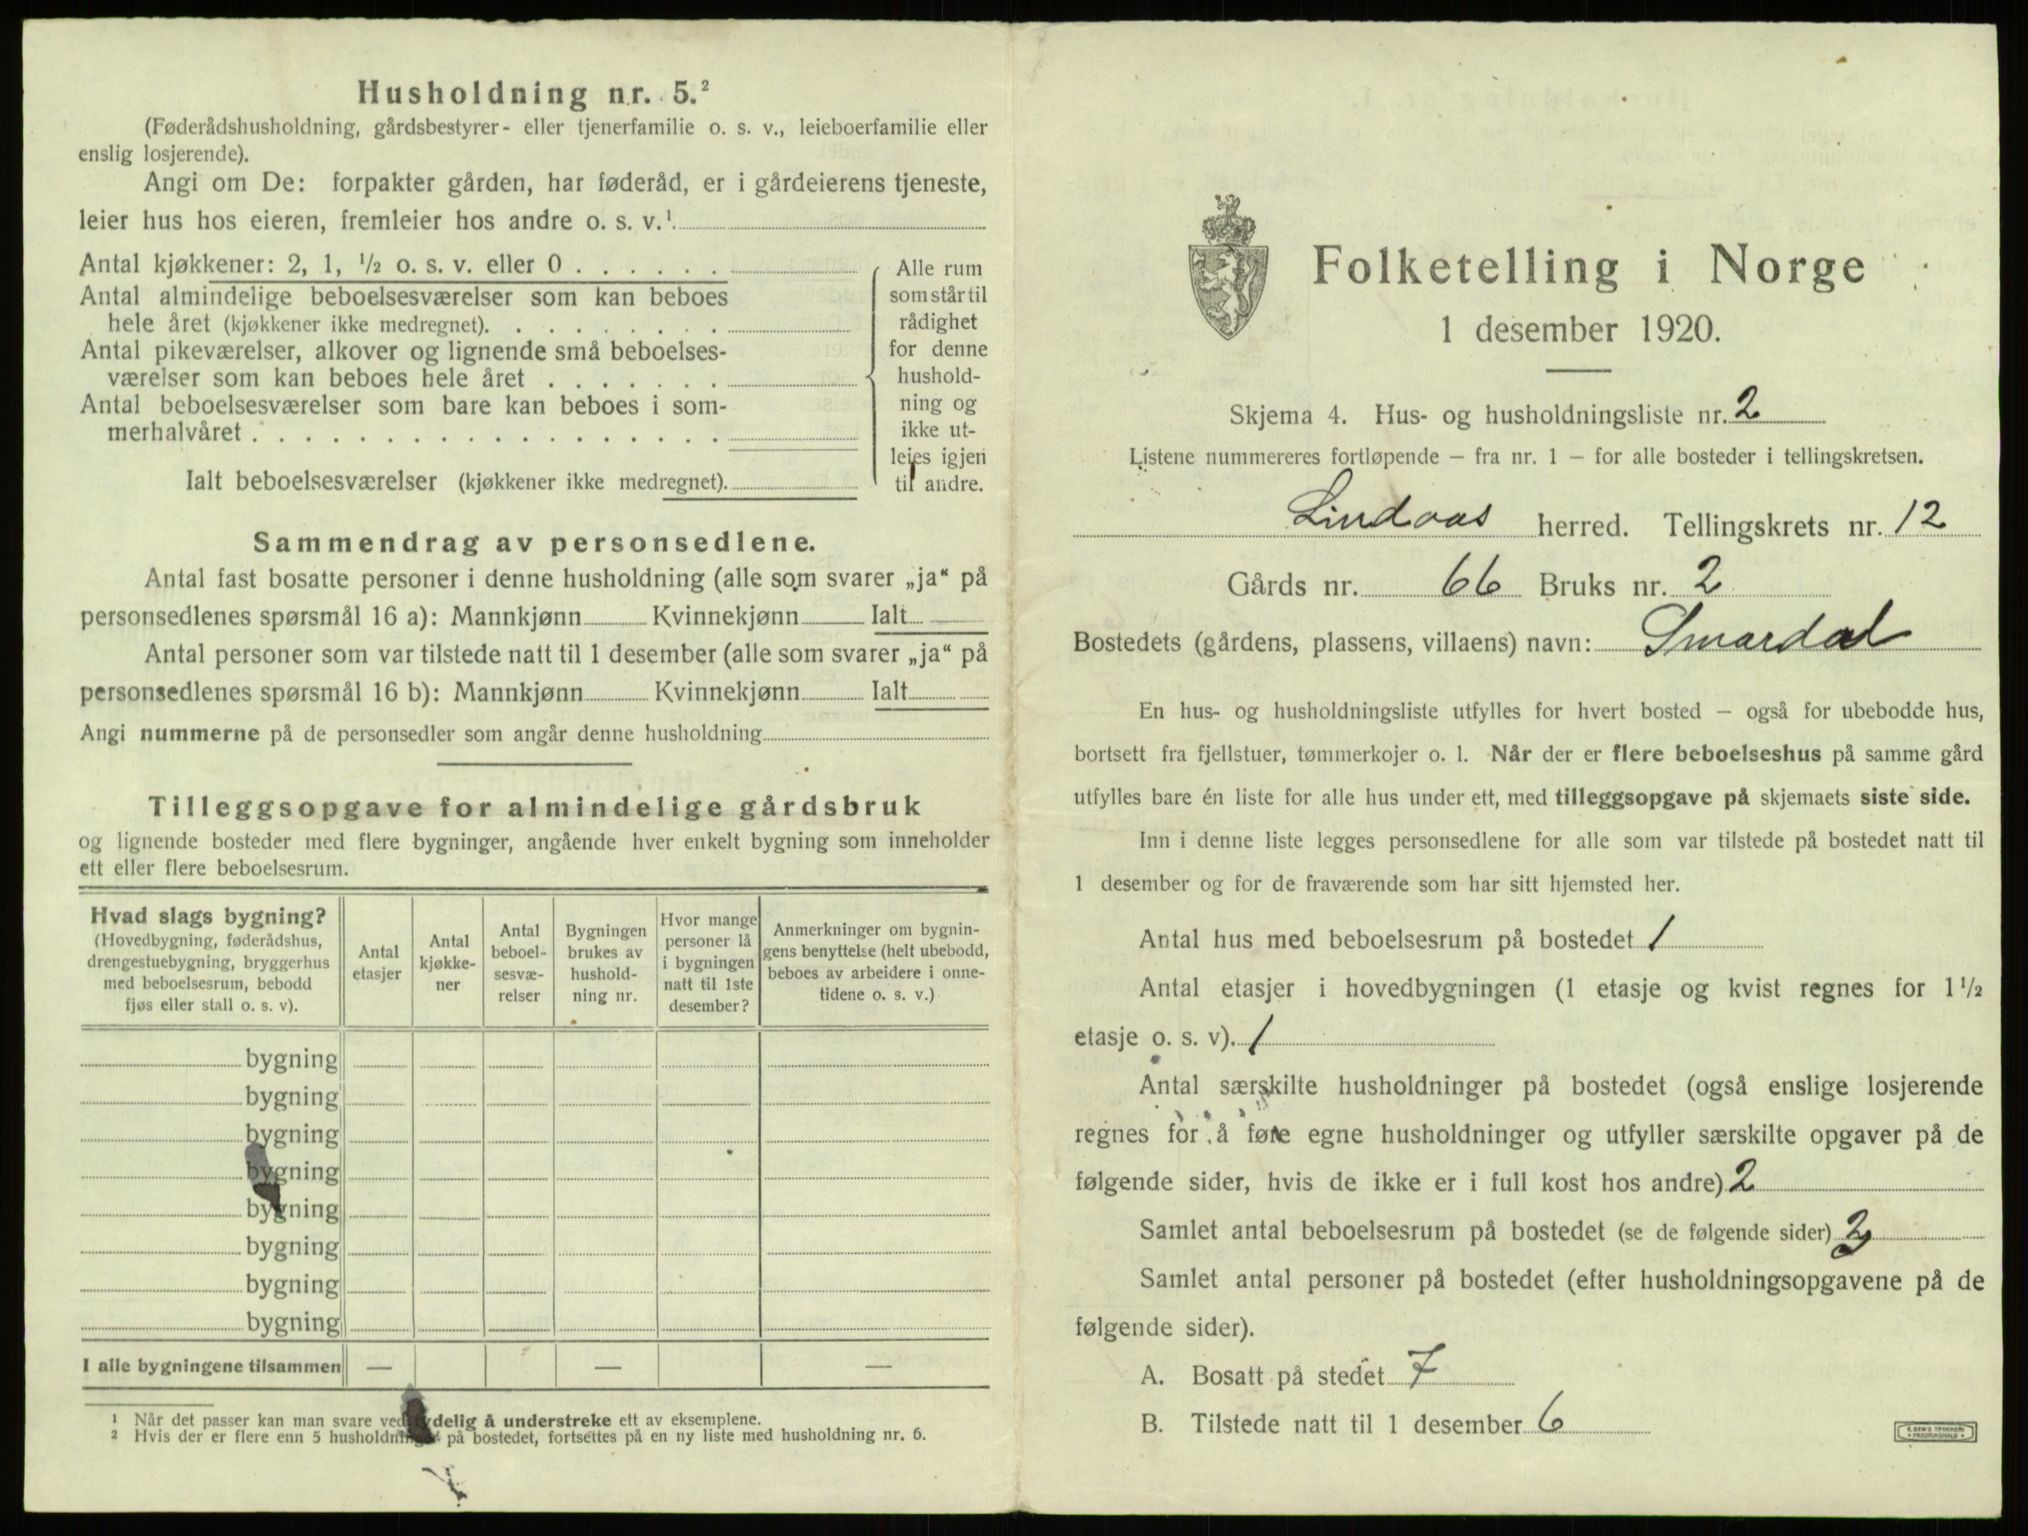 Husholdning nr. 5.²
(Føderådshusholdning, gårdsbestyrer- eller tjenerfamilie o. s. v., leieboerfamilie eller
enslig losjerende).
Angi om De: forpakter gården, har føderåd, er i gårdeierens tjeneste,
leier hus hos eieren, fremleier hos andre o. s. v.¹
Antal kjøkkener: 2, 1, ½ o. s. v. eller 0 . . . . . .
Antal almindelige beboelsesværelser som kan beboes
hele året (kjøkkener ikke medregnet). . . . . . . . .
Antal pikeværelser, alkover og lignende små beboelses-
værelser som kan beboes hele året . . . . . . .
Antal beboelsesværelser som bare kan beboes i som-
merhalvåret . . . . . . . . . . . . . . . . . .
Alle rum
som står til
rådighet
for denne
hushold-
ning og
ikke ut-
leies igjen
til andre.
Ialt beboelsesværelser (kjøkkener ikke medregnet).
Sammendrag av personsedlene.
Antal fast bosatte personer i denne husholdning (alle som svarer „ja“ på
personsedlenes spørsmål 16 a): Mannkjønn Kvinnekjønn Ialt
Antal personer som var tilstede natt til 1 desember (alle som svarer „ja“ på
personsedlenes spørsmål 16 b): Mannkjønn Kvinnekjønn Ialt
Angi nummerne på de personsedler som angår denne husholdning
Tilleggsopgave for almindelige gårdsbruk
og lignende bosteder med flere bygninger, angående hver enkelt bygning som inneholder
ett eller flere beboelsesrum.
Hvad slags bygning?
(Hovedbygning, føderådshus,
drengestuebygning, bryggerhus
med beboelsesrum, bebodd
fjøs eller stall o. s. v).
Antal
etasjer
Antal
kjøkke-
ner
Antal
beboel-
sesvæ-
relser
Bygningen
brukes av
hushold-
ning nr.
Hvor mange
personer lå
i bygningen
natt til 1ste
desember?
Anmerkninger om bygnin-
gens benyttelse (helt ubebodd,
beboes av arbeidere i onne-
tidene o. s. v.)
bygning
bygning
bygning
bygning
bygning
bygning
bygning
bygning
I alle bygningene tilsammen — — —
¹ Når det passer kan man svare ved tydelig å understreke ett av eksemplene.
² Hvis der er flere enn 5 husholdninger på bostedet, fortsettes på en ny liste med husholdning nr. 6.
Folketelling i Norge
1 desember 1920.
Skjema 4. Hus- og husholdningsliste nr. 2
Listene nummereres fortløpende – fra nr. 1 – for alle bosteder i tellingskretsen.
Lindaas herred. Tellingskrets nr. 12
Gårds nr. 66 Bruks nr. 2
Bostedets (gårdens, plassens, villaens) navn: Smørdal
En hus- og husholdningsliste utfylles for hvert bosted – også for ubebodde hus,
bortsett fra fjellstuer, tømmerkojer o. l. Når der er flere beboelseshus på samme gård
utfylles bare én liste for alle hus under ett, med tilleggsopgave på skjemaets siste side.
Inn i denne liste legges personsedlene for alle som var tilstede på bostedet natt til
1 desember og for de fraværende som har sitt hjemsted her.
Antal hus med beboelsesrum på bostedet 1
Antal etasjer i hovedbygningen (1 etasje og kvist regnes for 1 ½
etasje o. s. v). 1
Antal særskilte husholdninger på bostedet (også enslige losjerende
regnes for å føre egne husholdninger og utfyller særskilte opgaver på de
følgende sider, hvis de ikke er i full kost hos andre) 2
Samlet antal beboelsesrum på bostedet (se de følgende sider)
Samlet antal personer på bostedet (efter husholdningsopgavene på de
følgende sider).
A. Bosatt på stedet 7
B. Tilstede natt til 1 desember 6